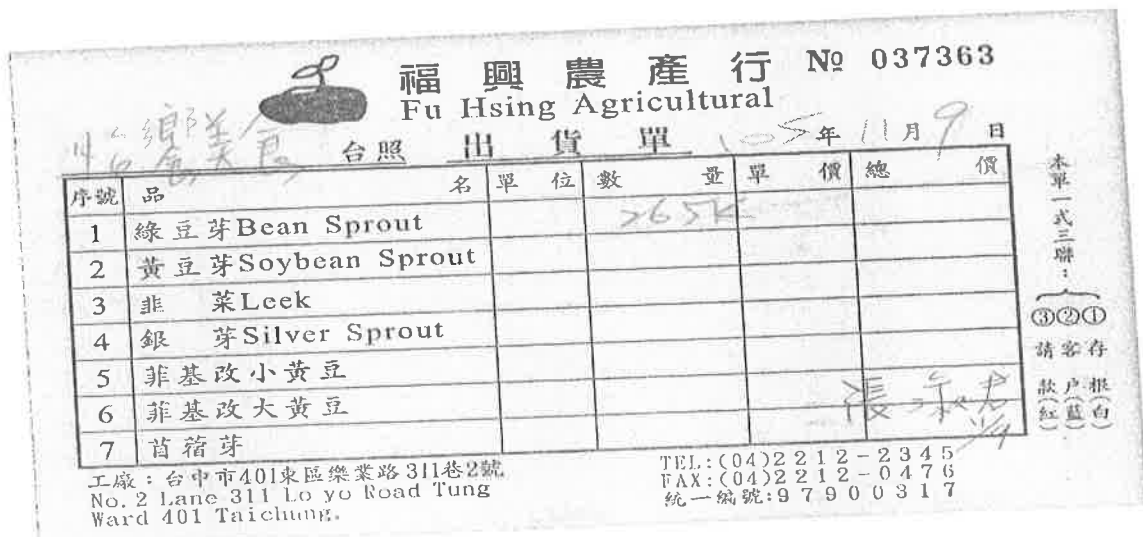 福興農產行 № 037363
Fu Hsing Agricultural
鄉美食 台照 出貨單 105年11月9日
序號 品名 單位 數量 單價 總價
1 綠豆芽Bean Sprout 265K
2 黃豆芽Soybean Sprout
3 韭菜Leek
4 銀芽Silver Sprout
5 菲基改小黃豆
6 菲基改大黃豆
7 苜蓿芽
張
11/9
工廠：台中市401東區樂業路311巷2號
No. 2 Lane 311 Lo yo Road Tung
Ward 401 Taichung.
TEL.:(04)2212-2345
FAX:(04)2212-0476
統一編號:97900317
本單一式三聯：
①存根(白)
②客戶(藍)
③請款(紅)